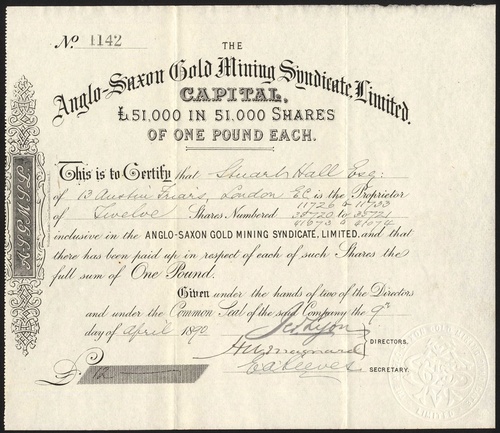 No. 1142
THE
Anglo-Saxon Gold Mining Syndicate, Limited.
CAPITAL,
£51,000 IN 51,000 SHARES
OF ONE POUND EACH.
This is to Certify that Stuart Hall Esq:
of 13 Austin Friars, London E.C is the Proprietor
11726 to 11733
of Twelve Shares Numbered 38720 to 38721
41973 to 41974
inclusive in the ANGLO-SAXON GOLD MINING SYNDICATE, LIMITED, and that
there has been paid up in respect of each of such Shares the
full sum of One Pound.
Given under the hands of two of the Directors
and under the Common Seal of the said Company the 9th
day of April 1890.
DIRECTORS.
SECRETARY.
£ 12
A.S.G.M.S.L.